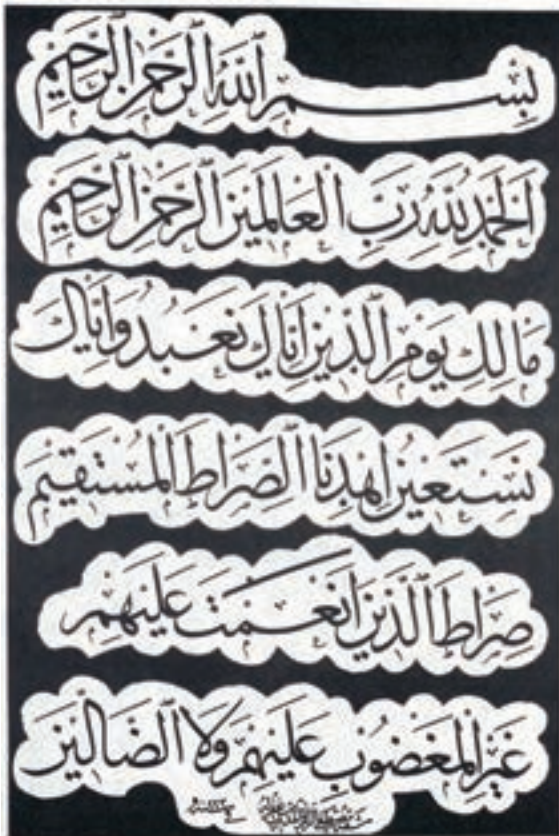 بِسْمِ ٱللَّهِ ٱلرَّحْمٰنِ ٱلرَّحِيمِ
اَلْحَمْدُ لِلَّهِ رَبِّ الْعَالَمِينَ ٱلرَّحْمٰنِ ٱلرَّحِيمِ
مَالِكِ يَوْمِ ٱلدِّينِ اِيَّاكَ نَعْبُدُ وَاِيَّاكَ
نَسْتَعِينُ اِهْدِنَا ٱلصِّرَاطَ الْمُسْتَقِيمَ
صِرَاطَ ٱلَّذِينَ اَنْعَمْتَ عَلَيْهِمْ
غَيْرِ الْمَغْضُوبِ عَلَيْهِمْ وَلَا ٱلضَّالِّينَ